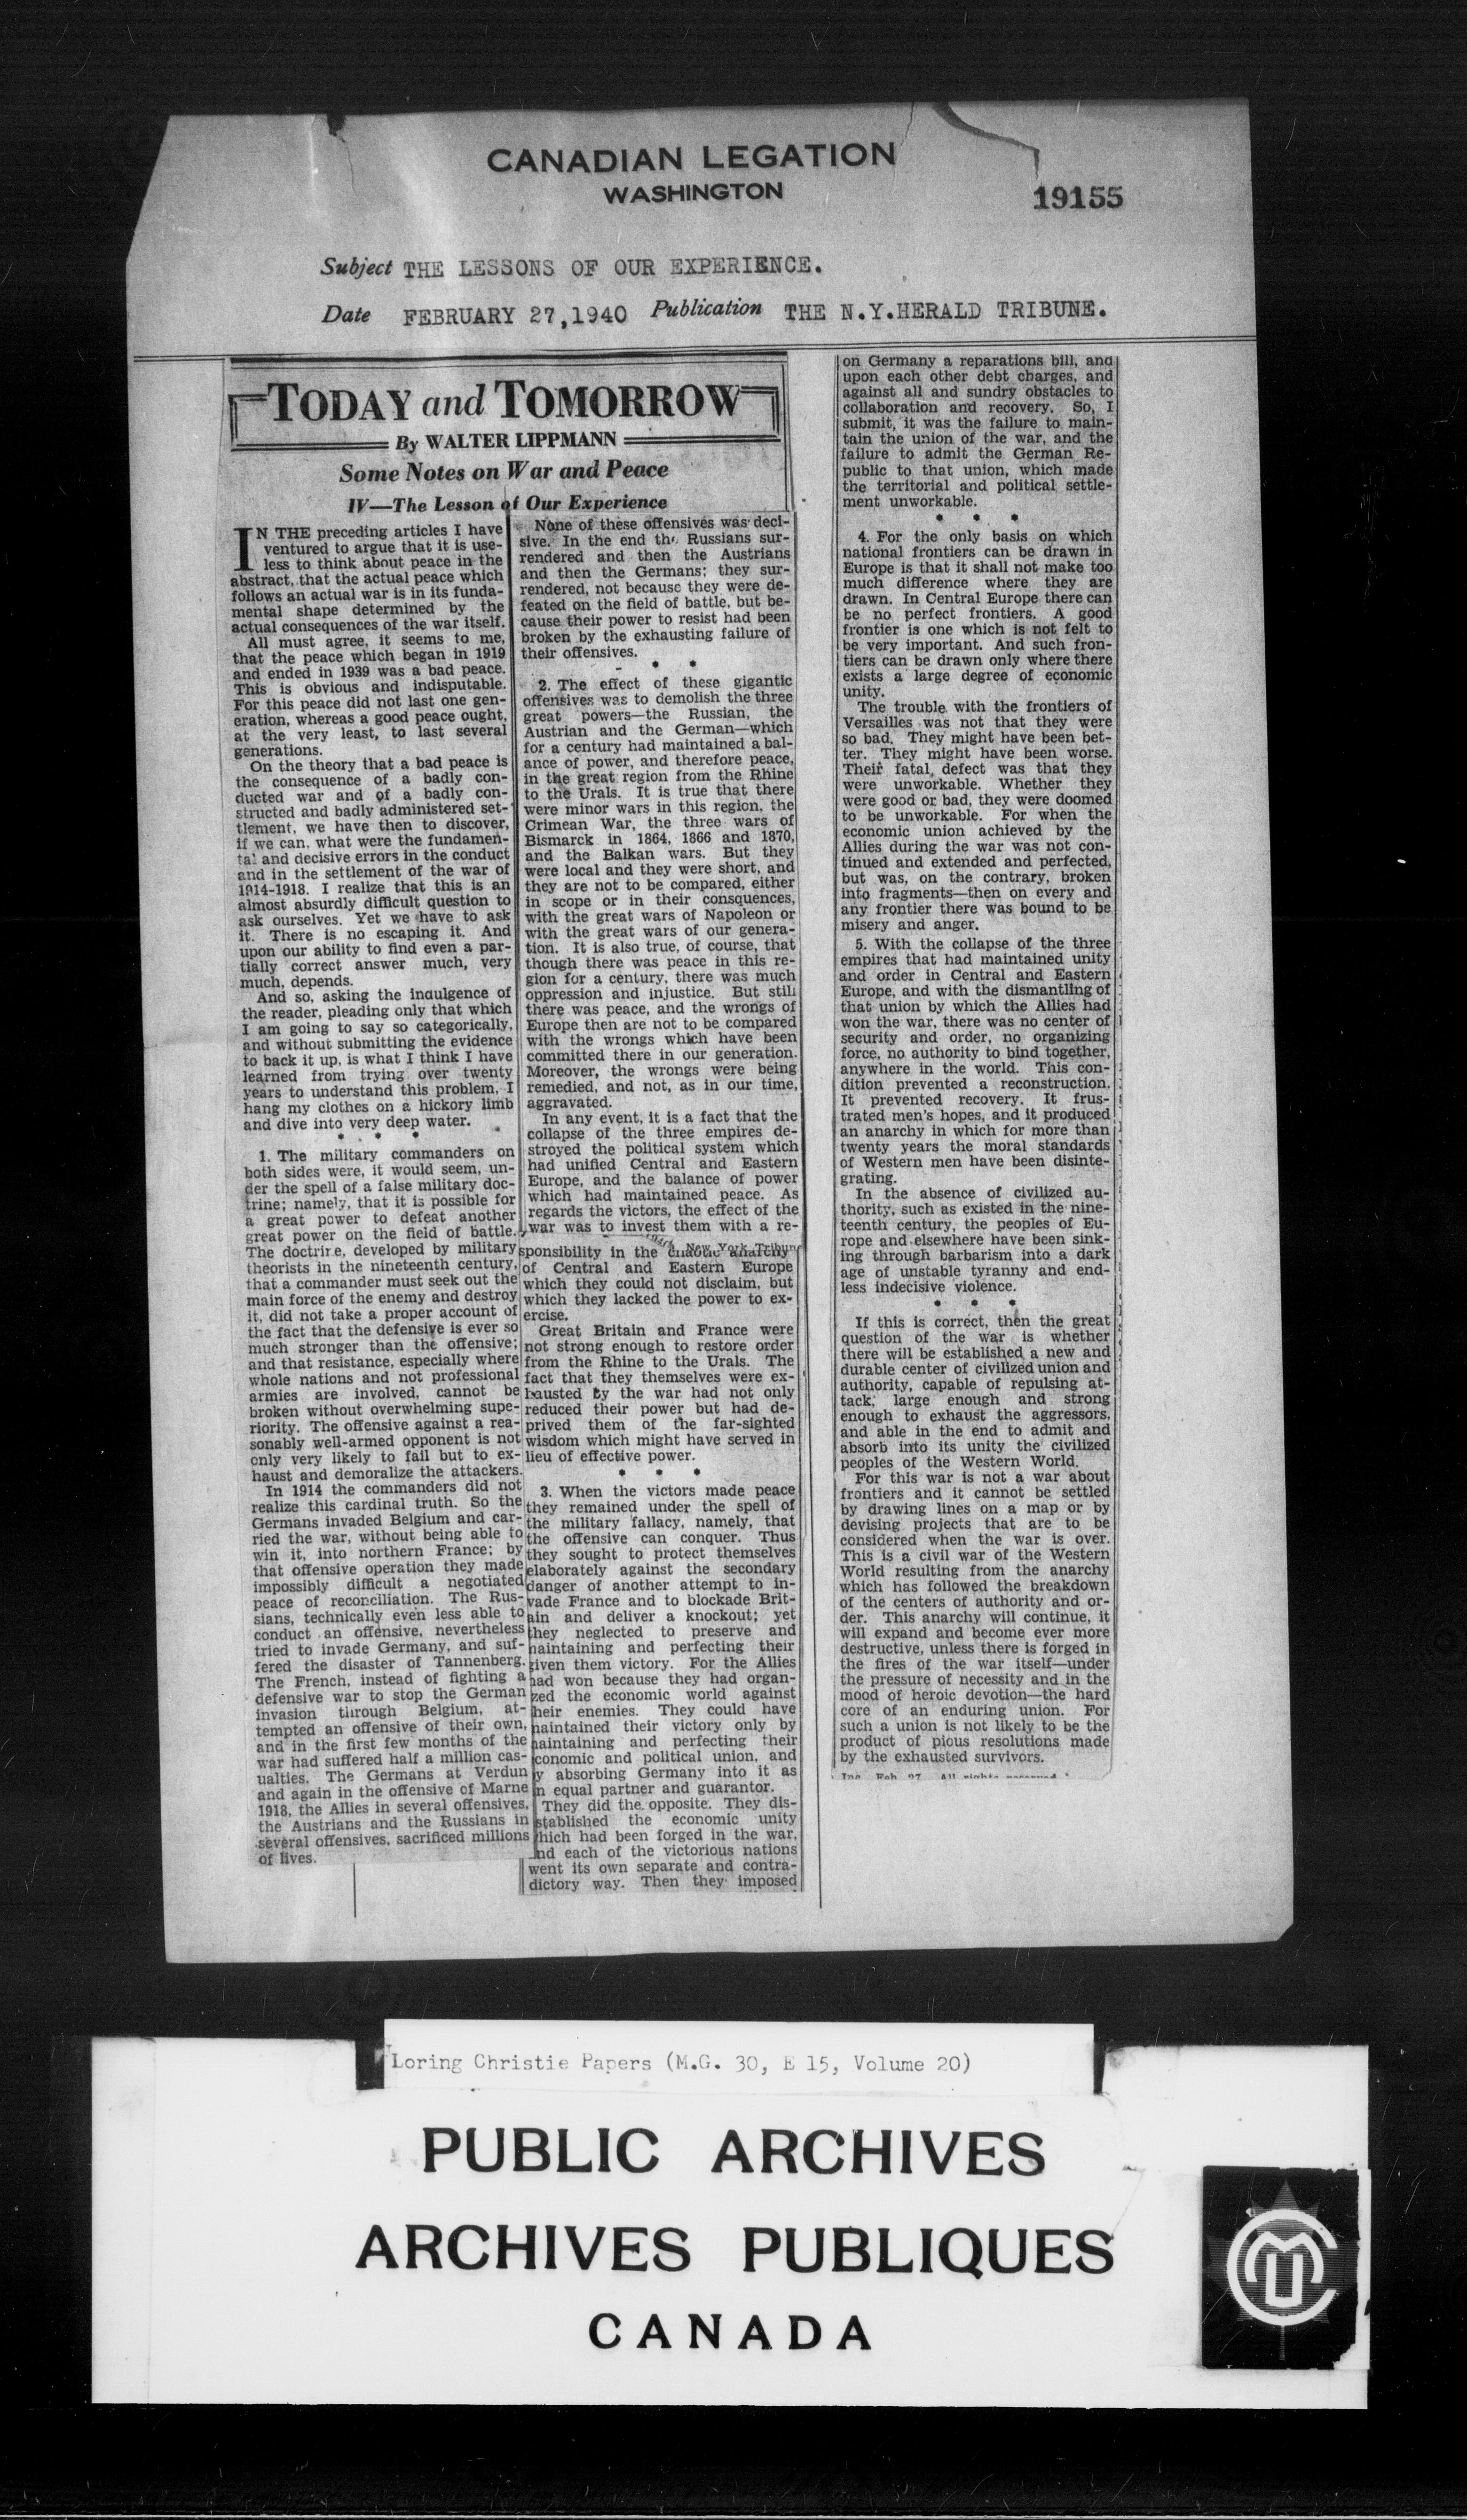 CANADIAN LEGATION
WASHINGTON
19155
Subject THE LESSONS OF OUR EXPERIENCE.
Date FEBRUARY 27,1940 Publication THE N.Y.HERALD TRIBUNE.
TODAY and TOMORROW
By WALTER LIPPMANN
Some Notes on War and Peace
IV—The Lesson of Our Experience
IN THE preceding articles I have
ventured to argue that it is use-
less to think about peace in the
abstract, that the actual peace which
follows an actual war is in its funda-
mental shape determined by the
actual consequences of the war itself.
All must agree, it seems to me,
that the peace which began in 1919
and ended in 1939 was a bad peace.
This is obvious and indisputable.
For this peace did not last one gen-
eration, whereas a good peace ought,
at the very least, to last several
generations.
On the theory that a bad peace is
the consequence of a badly con-
ducted war and of a badly con-
structed and badly administered set-
tlement, we have then to discover,
if we can, what were the fundamen-
tal and decisive errors in the conduct
and in the settlement of the war of
1914-1918. I realize that this is an
almost absurdly difficult question to
ask ourselves. Yet we have to ask
it. There is no escaping it. And
upon our ability to find even a par-
tially correct answer much, very
much, depends.
And so, asking the indulgence of
the reader, pleading only that which
I am going to say so categorically,
and without submitting the evidence
to back it up, is what I think I have
learned from trying over twenty
years to understand this problem, I
hang my clothes on a hickory limb
and dive into very deep water.
* * *
1. The military commanders on
both sides were, it would seem, un-
der the spell of a false military doc-
trine; namely, that it is possible for
a great power to defeat another
great power on the field of battle.
The doctrine, developed by military
theorists in the nineteenth century,
that a commander must seek out the
main force of the enemy and destroy
it, did not take a proper account of
the fact that the defensive is ever so
much stronger than the offensive;
and that resistance, especially where
whole nations and not professional
armies are involved, cannot be
broken without overwhelming supe-
riority. The offensive against a rea-
sonably well-armed opponent is not
only very likely to fail but to ex-
haust and demoralize the attackers.
In 1914 the commanders did not
realize this cardinal truth. So the
Germans invaded Belgium and car-
ried the war, without being able to
win it, into northern France; by
that offensive operation they made
impossibly difficult a negotiated
peace of reconciliation. The Rus-
sians, technically even less able to
conduct an offensive, nevertheless
tried to invade Germany, and suf-
fered the disaster of Tannenberg.
The French, instead of fighting a
defensive war to stop the German
invasion through Belgium, at-
tempted an offensive of their own,
and in the first few months of the
war had suffered half a million cas-
ualties. The Germans at Verdun
and again in the offensive of Marne
1918, the Allies in several offensives,
the Austrians and the Russians in
several offensives, sacrificed millions
of lives.
None of these offensives was deci-
sive. In the end the Russians sur-
rendered and then the Austrians
and then the Germans; they sur-
rendered, not because they were de-
feated on the field of battle, but be-
cause their power to resist had been
broken by the exhausting failure of
their offensives.
* *
2. The effect of these gigantic
offensives was to demolish the three
great powers—the Russian, the
Austrian and the German—which
for a century had maintained a bal-
ance of power, and therefore peace,
in the great region from the Rhine
to the Urals. It is true that there
were minor wars in this region, the
Crimean War, the three wars of
Bismarck in 1864, 1866 and 1870,
and the Balkan wars. But they
were local and they were short, and
they are not to be compared, either
in scope or in their consquences,
with the great wars of Napoleon or
with the great wars of our genera-
tion. It is also true, of course, that
though there was peace in this re-
gion for a century, there was much
oppression and injustice. But still
there was peace, and the wrongs of
Europe then are not to be compared
with the wrongs which have been
committed there in our generation.
Moreover, the wrongs were being
remedied, and not, as in our time,
aggravated.
In any event, it is a fact that the
collapse of the three empires de-
stroyed the political system which
had unified Central and Eastern
Europe, and the balance of power
which had maintained peace. As
regards the victors, the effect of the
war was to invest them with a re-
New York Tribun
sponsibility in the chaotic anarchy
of Central and Eastern Europe
which they could not disclaim, but
which they lacked the power to ex-
ercise.
Great Britain and France were
not strong enough to restore order
from the Rhine to the Urals. The
fact that they themselves were ex-
hausted by the war had not only
reduced their power but had de-
prived them of the far-sighted
wisdom which might have served in
lieu of effective power.
* * *
3. When the victors made peace
they remained under the spell of
the military fallacy, namely, that
the offensive can conquer. Thus
they sought to protect themselves
elaborately against the secondary
danger of another attempt to in-
vade France and to blockade Brit-
ain and deliver a knockout; yet
they neglected to preserve and
naintaining and perfecting their
given them victory. For the Allies
had won because they had organ-
zed the economic world against
heir enemies. They could have
naintained their victory only by
naintaining and perfecting their
conomic and political union, and
y absorbing Germany into it as
n equal partner and guarantor.
They did the opposite. They dis-
stablished the economic unity
hich had been forged in the war,
nd each of the victorious nations
went its own separate and contra-
dictory way. Then they imposed
on Germany a reparations bill, and
upon each other debt charges, and
against all and sundry obstacles to
collaboration and recovery. So, I
submit, it was the failure to main-
tain the union of the war, and the
failure to admit the German Re-
public to that union, which made
the territorial and political settle-
ment unworkable.
* * *
4. For the only basis on which
national frontiers can be drawn in
Europe is that it shall not make too
much difference where they are
drawn. In Central Europe there can
be no perfect frontiers. A good
frontier is one which is not felt to
be very important. And such fron-
tiers can be drawn only where there
exists a large degree of economic
unity.
The trouble with the frontiers of
Versailles was not that they were
so bad. They might have been bet-
ter. They might have been worse.
Their fatal defect was that they
were unworkable. Whether they
were good or bad, they were doomed
to be unworkable. For when the
economic union achieved by the
Allies during the war was not con-
tinued and extended and perfected,
but was, on the contrary, broken
into fragments—then on every and
any frontier there was bound to be
misery and anger.
5. With the collapse of the three
empires that had maintained unity
and order in Central and Eastern
Europe, and with the dismantling of
that union by which the Allies had
won the war, there was no center of
security and order, no organizing
force, no authority to bind together,
anywhere in the world. This con-
dition prevented a reconstruction.
It prevented recovery. It frus-
trated men's hopes, and it produced
an anarchy in which for more than
twenty years the moral standards
of Western men have been disinte-
grating.
In the absence of civilized au-
thority, such as existed in the nine-
teenth century, the peoples of Eu-
rope and elsewhere have been sink-
ing through barbarism into a dark
age of unstable tyranny and end-
less indecisive violence.
* * *
If this is correct, then the great
question of the war is whether
there will be established a new and
durable center of civilized union and
authority, capable of repulsing at-
tack, large enough and strong
enough to exhaust the aggressors,
and able in the end to admit and
absorb into its unity the civilized
peoples of the Western World.
For this war is not a war about
frontiers and it cannot be settled
by drawing lines on a map or by
devising projects that are to be
considered when the war is over.
This is a civil war of the Western
World resulting from the anarchy
which has followed the breakdown
of the centers of authority and or-
der. This anarchy will continue, it
will expand and become ever more
destructive, unless there is forged in
the fires of the war itself—under
the pressure of necessity and in the
mood of heroic devotion—the hard
core of an enduring union. For
such a union is not likely to be the
product of pious resolutions made
by the exhausted survivors.
Inc. Feb 27 All rights reserved
Loring Christie Papers (M.G. 30, E 15, Volume 20)
PUBLIC ARCHIVES
ARCHIVES PUBLIQUES
CANADA